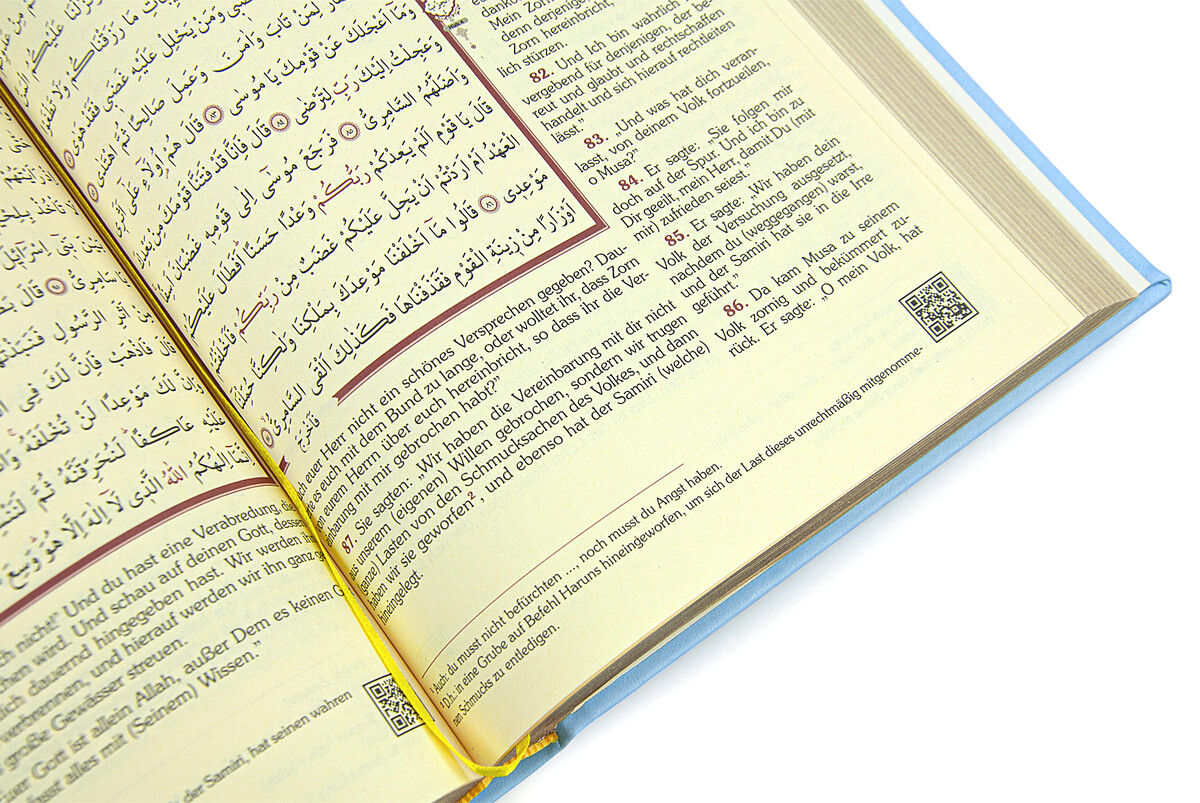 غَضَبى وَمَنْ يَحْلِلْ عَلَيْهِ غَضَبى فَقَدْ هَوٰى
لِمَنْ تَابَ وَاٰمَنَ وَعَمِلَ صَالِحًا ثُمَّ اهْتَدٰى
وَمَآ اَعْجَلَكَ عَنْ قَوْمِكَ يَا مُوسٰى ﴿٨٣﴾ قَالَ هُمْ اُولَاۤءِ عَلٰٓى اَثَرى
وَعَجِلْتُ اِلَيْكَ رَبِّ لِتَرْضٰى ﴿٨٤﴾ قَالَ فَاِنَّا قَدْ فَتَنَّا قَوْمَكَ مِنْ
وَاَضَلَّهُمُ السَّامِرِىُّ ﴿٨٥﴾ فَرَجَعَ مُوسٰٓى اِلٰى قَوْمِه غَضْبَانَ
قَالَ يَا قَوْمِ اَلَمْ يَعِدْكُمْ رَبُّكُمْ وَعْدًا حَسَنًا اَفَطَالَ عَلَيْكُمُ
الْعَهْدُ اَمْ اَرَدْتُمْ اَنْ يَحِلَّ عَلَيْكُمْ غَضَبٌ مِنْ رَبِّكُمْ فَاَخْلَفْتُمْ
مَوْعِدى ﴿٨٦﴾ قَالُوا مَآ اَخْلَفْنَا مَوْعِدَكَ بِمَلْكِنَا وَلٰكِنَّا حُمِّلْنَآ
اَوْزَارًا مِنْ زِينَةِ الْقَوْمِ فَقَذَفْنَاهَا فَكَذٰلِكَ اَلْقَى السَّامِرِىُّ ﴿٨٧﴾
فَاَخْرَجَ
Mein Zorn
denn derjenige
Zorn hereinbricht,
lich stürzen.
82. Und Ich bin wahrlich
vergebend für denjenigen, der be-
reut und glaubt und rechtschaffen
handelt und sich hierauf rechtleiten
lässt.”
83. „Und was hat dich veran-
lasst, von deinem Volk fortzueilen,
o Musa?”
84. Er sagte: „Sie folgen mir
doch auf der Spur. Und ich bin zu
Dir geeilt, mein Herr, damit Du (mit
mir) zufrieden seiest.”
85. Er sagte: „Wir haben dein
Volk der Versuchung ausgesetzt,
nachdem du (weggegangen) warst,
und der Samiri hat sie in die Irre
geführt.”
86. Da kam Musa zu seinem
Volk zornig und bekümmert zu-
rück. Er sagte: „O mein Volk, hat
euch euer Herr nicht ein schönes Versprechen gegeben? Dau-
erte es euch mit dem Bund zu lange, oder wolltet ihr, dass Zorn
von eurem Herrn über euch hereinbricht, so dass ihr die Ver-
einbarung mit mir gebrochen habt?”
87. Sie sagten: „Wir haben die Vereinbarung mit dir nicht
aus unserem (eigenen) Willen gebrochen, sondern wir trugen
(ganze) Lasten von den Schmucksachen des Volkes, und dann
haben wir sie geworfen², und ebenso hat der Samiri (welche)
hineingelegt.
¹ Auch: du musst nicht befürchten ..., noch musst du Angst haben.
² D.h.: in eine Grube auf Befehl Haruns hineingeworfen, um sich der Last dieses unrechtmäßig mitgenomme-
nen Schmucks zu entledigen.
قَالَ
فَاذْهَبْ فَاِنَّ لَكَ فِى
لَكَ مَوْعِدًا لَنْ تُخْلَفَهُ
عَلَيْهِ عَاكِفًا لَنُحَرِّقَنَّهُ ثُمَّ
اِلٰهُكُمُ اللّٰهُ الَّذى لَآ اِلٰهَ اِلَّا هُوَ وَسِعَ
nicht!' Und du hast eine Verabredung, die
wird. Und schau auf deinen Gott, dessen
dauernd hingegeben hast. Wir werden ihn
verbrennen, und hierauf werden wir ihn ganz
große Gewässer streuen.
Gott ist allein Allah, außer Dem es keinen
alles mit (Seinem) Wissen.”
der Samiri, hat seinen wahren